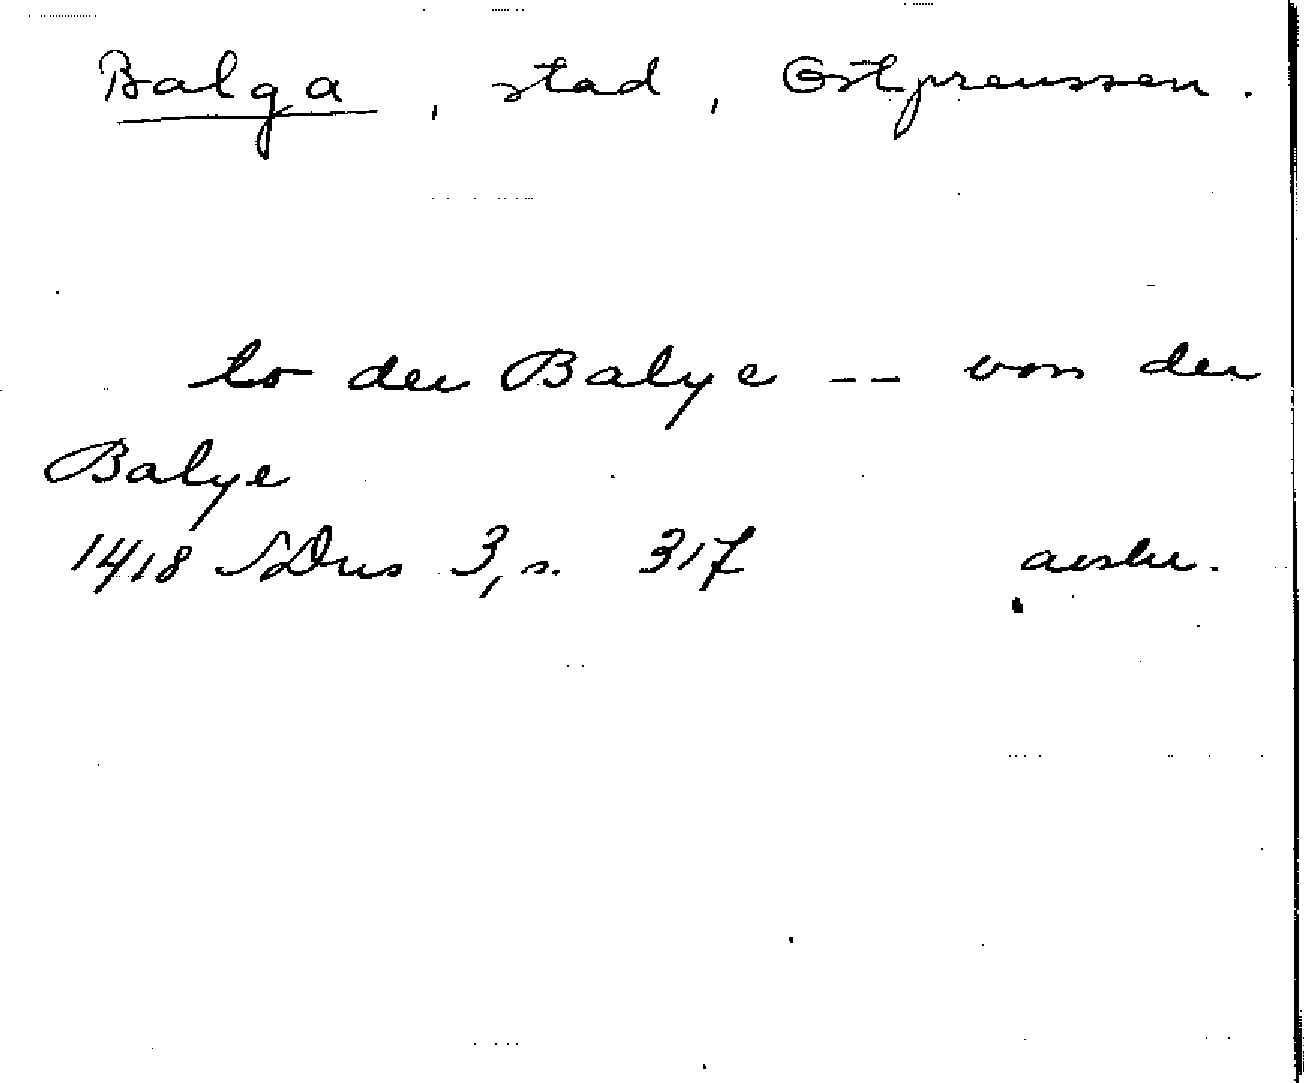 Balga, stad, Ostpreussen.
to der Balye -- von der
Balye
1418 SDns 3, s. 317 avskr.